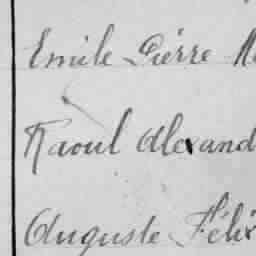 Emile Pierre
Raoul Alexand
Auguste Félix